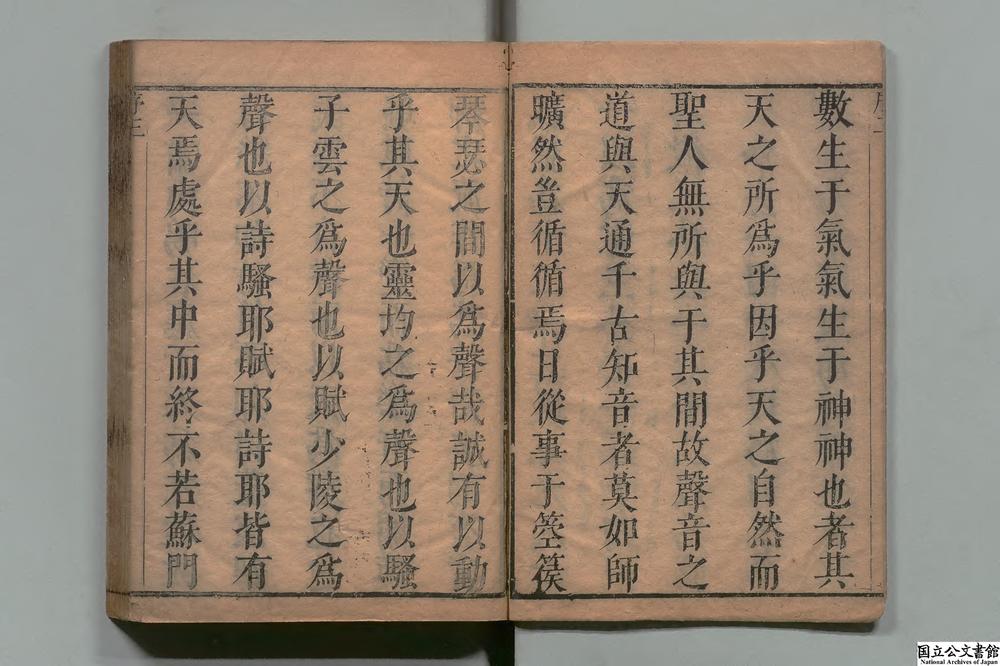 數生于氣氣生于神神也者其
天之所爲乎因乎天之自然而
聖人無所與于其間故聲音之
道與天通千古知音者莫如師
曠然豈循循焉日從事于箜篌
琴瑟之間以爲聲哉誠有以動
乎其天也靈均之爲聲也以騷
子雲之爲聲也以賦少陵之爲
聲也以詩騷耶賦耶詩耶皆有
天焉處乎其中而終不若蘇門
国立公文書館
National Archives of Japan